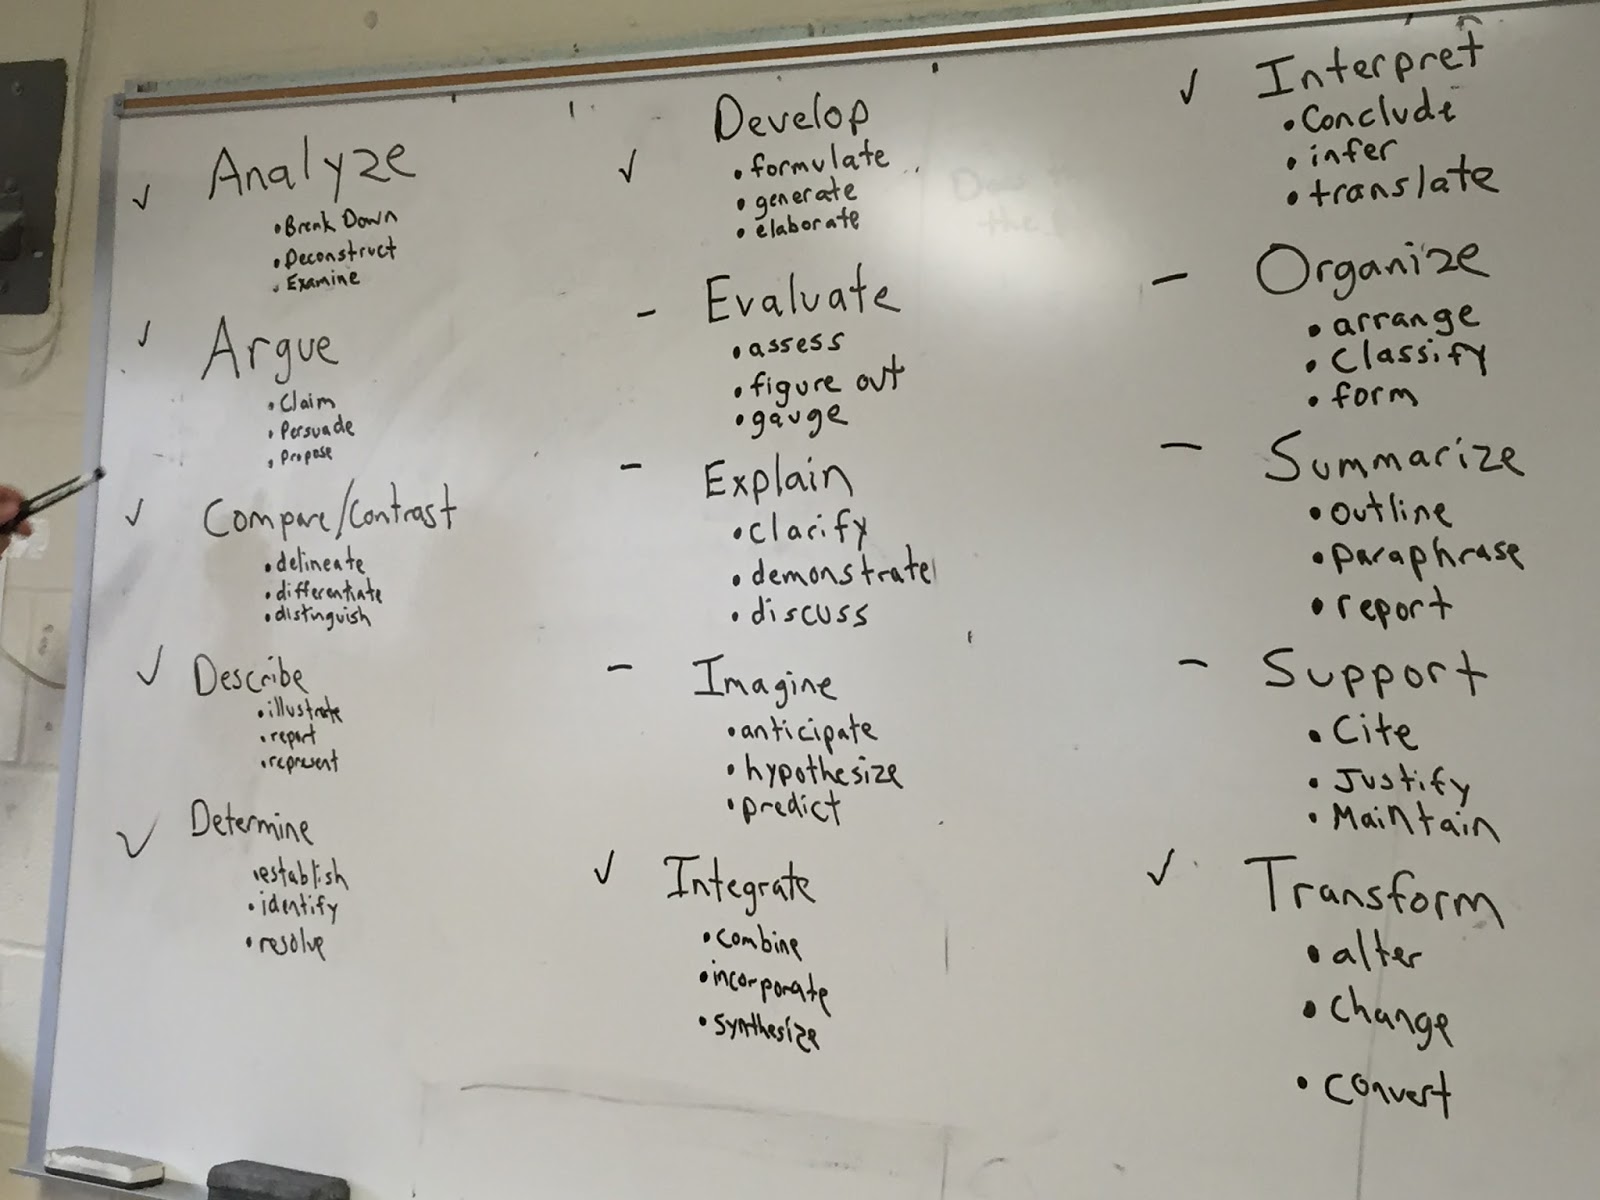 ✓ Analyze
• Break Down
• Deconstruct
• Examine
✓ Argue
• Claim
• Persuade
• Propose
✓ Compare/Contrast
• delineate
• differentiate
• distinguish
✓ Describe
• illustrate
• report
• represent
✓ Determine
• establish
• identify
• resolve
✓ Develop
• formulate
• generate
• elaborate
– Evaluate
• assess
• figure out
• gauge
– Explain
• clarify
• demonstrate
• discuss
– Imagine
• anticipate
• hypothesize
• predict
✓ Integrate
• combine
• incorporate
• synthesize
✓ Interpret
• Conclude
• infer
• translate
– Organize
• arrange
• Classify
• form
– Summarize
• outline
• paraphrase
• report
– Support
• Cite
• Justify
• Maintain
✓ Transform
• alter
• change
• convert